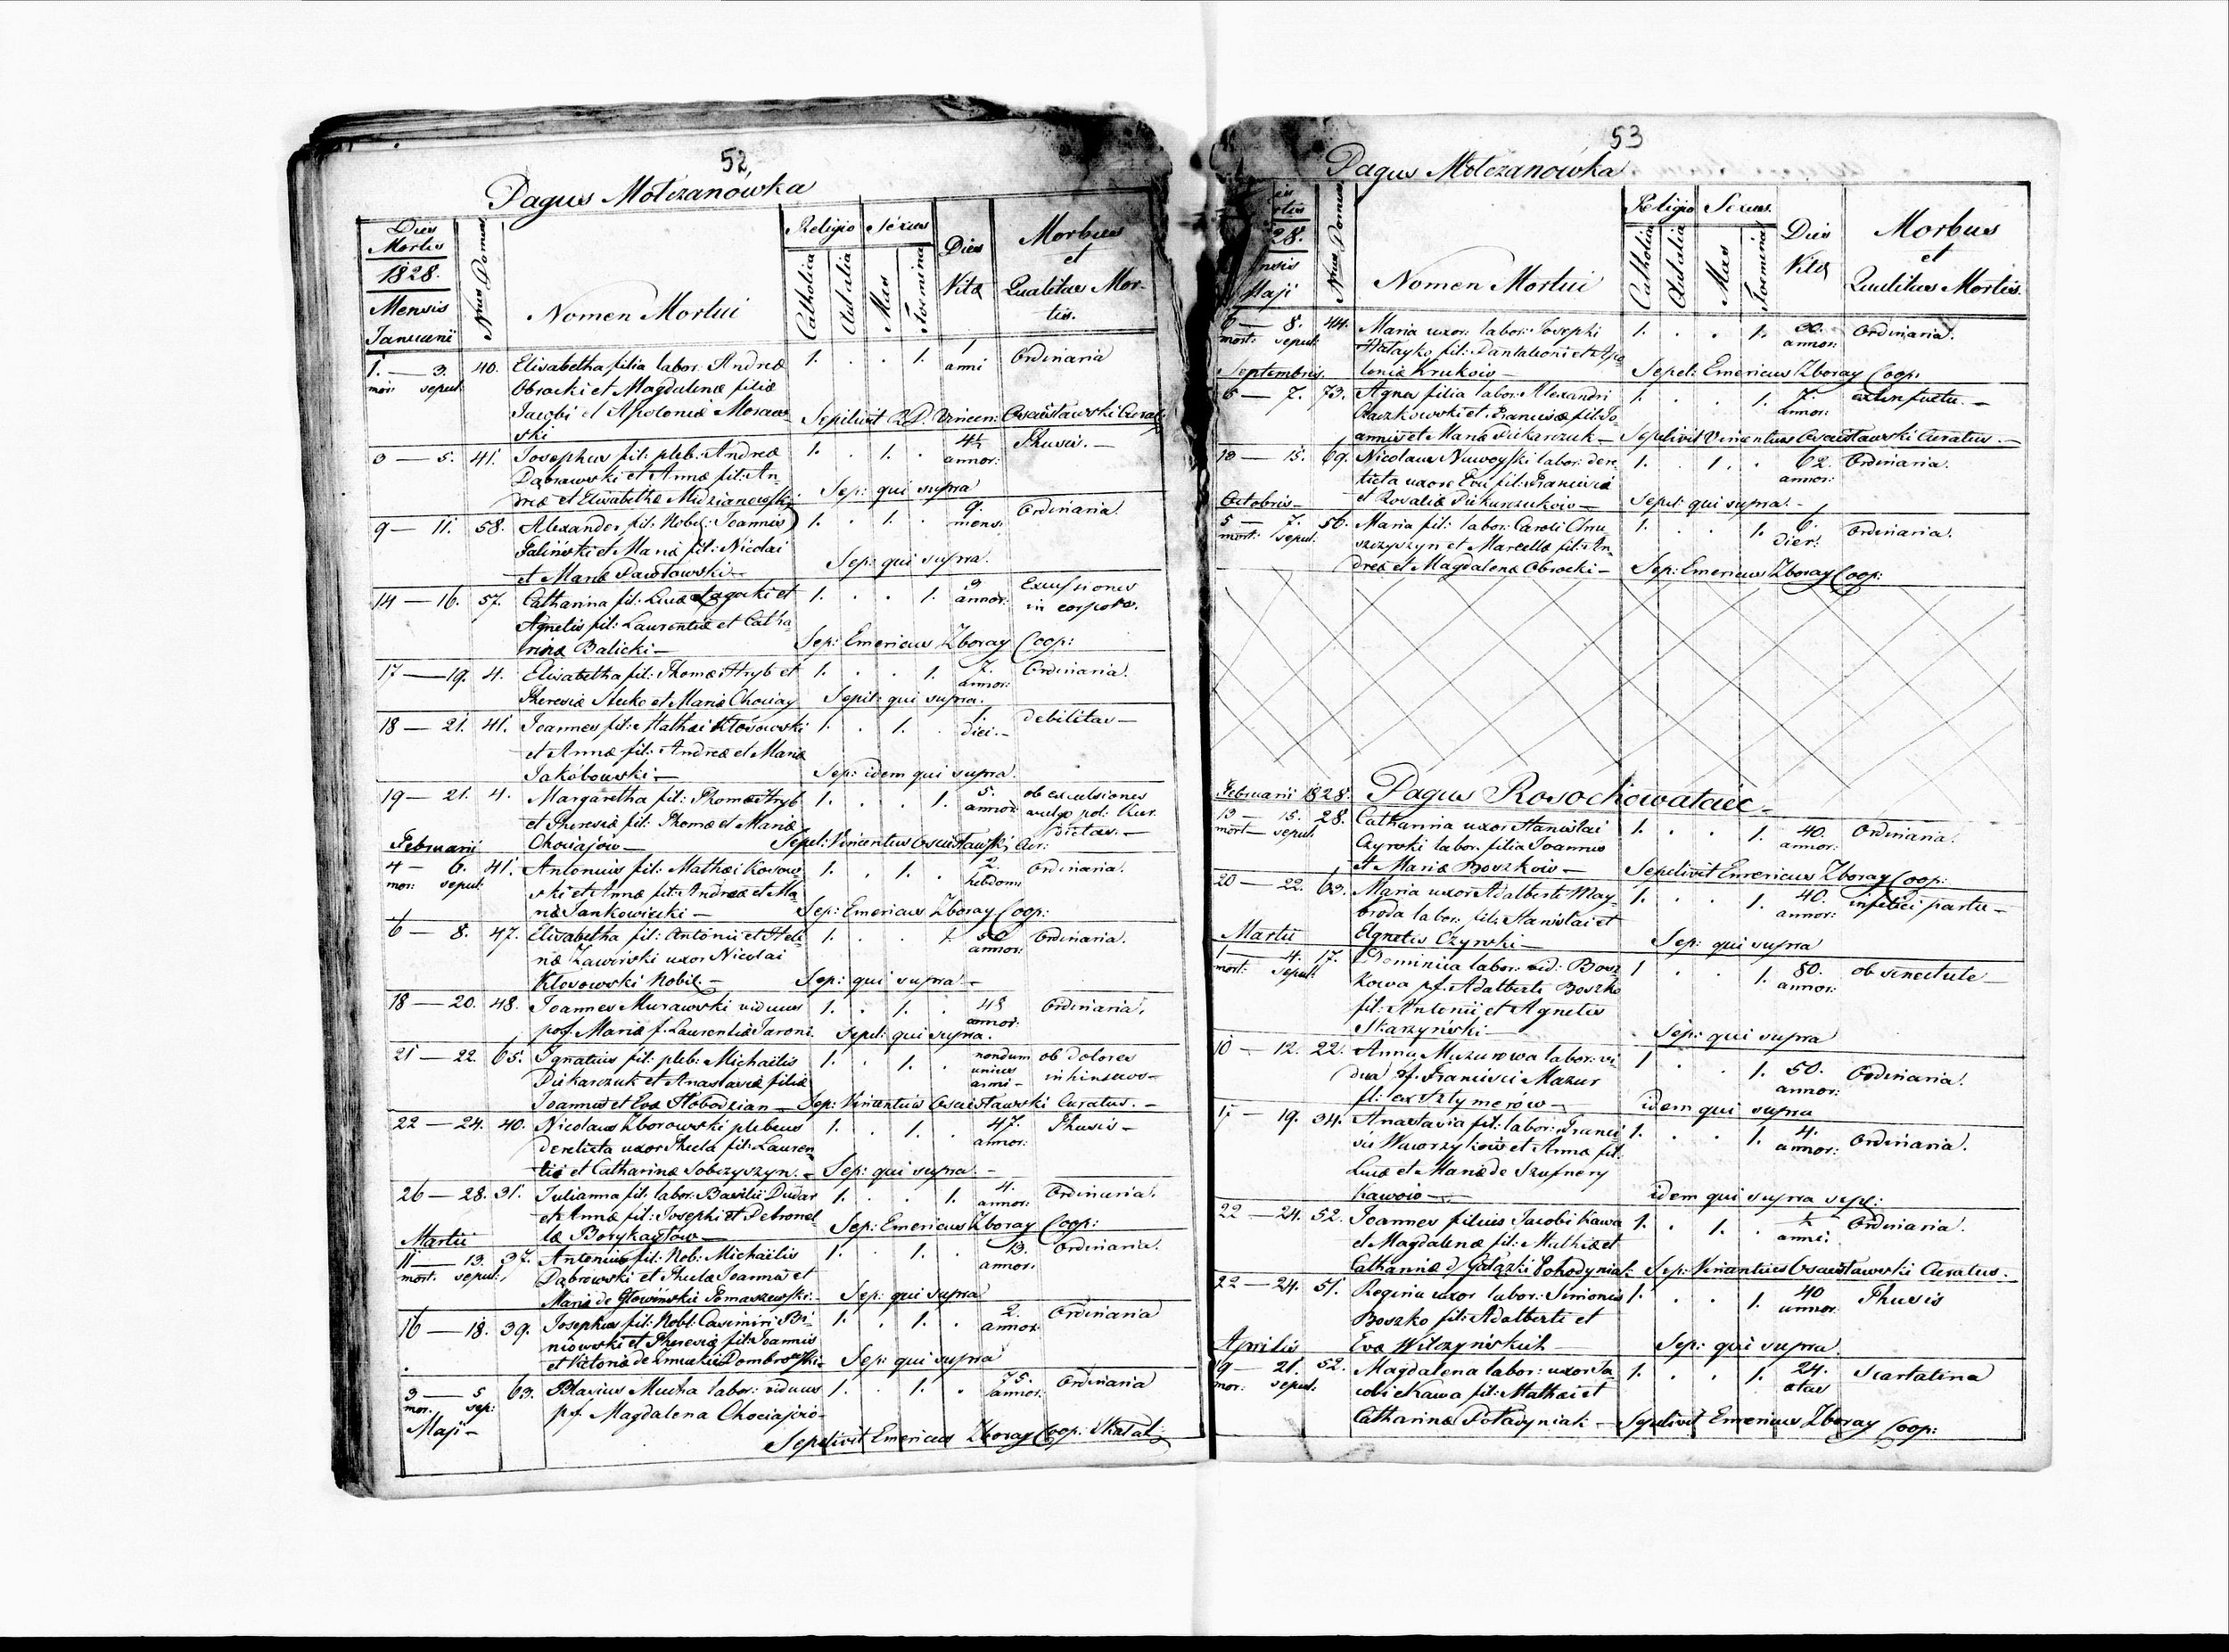 52
Pagus Mołczanówka
Dies Mortis
1828.
Mensis
Januarii
Nrus Domus
Nomen Mortui
Religio
Catholica
Aut alia
Sexus
Mas
Foemina
Dies Vitæ
Morbus et Qualitas Mortis.
1. — 3. 40. Elisabetha filia labor: Andreæ 1. . . 1. 1 Ordinaria
mor: sepult: Obrocki et Magdalenæ filiæ anni
Jacobi et Apoloniæ Moraw
ski Sepelivit R.D. Vincen: Curat:
3 — 5. 41. Josephus fil: pleb: Andreæ 1. . 1. . 4½ Thusis. —
Dąbrowski et Annæ fil: An- annor:
dreæ et Elisabethæ Sep: qui supra
9 — 11. 58. Alexander fil: Nobil: Joannis 1. . 1. . 9. Ordinaria
Galiński et Mariæ fil: Nicolai mens:
et Mariæ Pawłowski — Sep: qui supra.
14 — 16. 57. Catharina fil: Lucæ et 1. . . 1. 3 Excussiones
Agnetis fil: Laurentii et Catha- annor: in corpore.
rinæ Balicki — Sep: Emericus Zboray Coop:
17 — 19. 4. Elisabetha fil: Thomæ Hryb et 1. . . 1. 7. Ordinaria.
Theresiæ et Mariæ Chociay annor:
Sepel: qui supra.
18 — 21. 41. Joannes fil: Mathæi Kłosowski 1. . 1. . 1. debilitas —
et Annæ fil: Andreæ et Mariæ diei. —
Jakóbowski — Sep: idem qui supra.
19 — 21. 4. Margaretha fil: Thomæ Hryb 1. . . 1. 5. ob exculsiones
et Theresiæ fil: Thomæ et Mariæ annor: vulgo pol: Kur
Februarii Chociajów — Sepel: Vincentius Cur: dictas. —
4 — 6. 41. Antonius fil: Mathæi Kosow 1. . 1. . 2. Ordinaria.
mor: sepult: ski et Annæ fil: Andreæ et Ma- hebdom:
riæ Jankowiecki — Sep: Emericus Zboray Coop:
6 — 8. 47. Elisabetha fil: Antonii et Hele- 1. . . 1. 50 Ordinaria.
næ Zawirski uxor Nicolai annor:
Kłosowski Nobil. — Sep: qui supra. —
18 — 20. 48. Joannes Murawski viduus 1. . 1. . 48 Ordinaria.
pof Mariæ f. Laurentii Jaroni. Sepel: qui supra. annor:
21 — 22. 65. Ignatius fil: pleb: Michaelis 1. . 1. . nondum ob dolores
Piekarczuk et Anastasiæ filiæ unius intrinsecos —
Joannis et Evæ Słobodzian — Sep: Vincentius Curatus. — anni —
22 — 24. 40. Nicolaus Zborowski plebeus 1. . 1. . 47. Thusis —
derelicta uxor Thecla fil: Lauren annor:
tii et Catharinæ Sobczyszyn. — Sep: qui supra. —
26 — 28. 31. Julianna fil: labor: Basilii Dudar 1. . . 1. 4. Ordinaria.
et Annæ fil: Josephi et Petronel annor:
Martii læ Borykajłow — Sep: Emericus Zboray Coop:
11 — 13. 37. Antonius fil: Nob: Michaelis 1. . 1. . 13. Ordinaria.
mort: sepult: Dąbrowski et Theclæ Joannis et annor:
Mariæ de Głowińskie Tomaszewski — Sep: qui supra
16 — 18. 39. Josephus fil: Nobl: Casimiri Bi- 1. . 1. . 2. Ordinaria
niowski et Theresiæ fil: Joannis annor:
et Victoriæ de Dombrowski — Sep: qui supra
3 — 5 63. Blasius Mucha labor: viduus 1. . 1. . 75. Ordinaria
mor. sep: pf Magdalena Chociajów — annor:
Maji — Sepelivit Emericus Zboray Coop: Skałat:
53
Pagus Mołczanówka
28.
Maji
Nrus Domus
Nomen Mortui
Religio
Catholica
Aut alia
Sexus.
Mas
Foemina
Dies Vitæ
Morbus et Qualitas Mortis.
6 — 8. 44. Maria uxor: labor: Josephi 1. . . 1. 30. Ordinaria.
mort: sepult: fil: Pantaleoni et Apo annor:
Septembris loniæ Kruków — Sepel: Emericus Zboray Coop:
6 — 7. 73. Agnes filia labor: Alexandri 1. . . 1. 7.
et Franciscæ fil: Jo annor:
annis et Mariæ Piekarczuk — Sepelivit Vincentius Curatus. —
13 — 15. 69. Nicolaus labor: dere- 1. . 1. . 62. Ordinaria.
licta uxore Eva fil: Francisci annor:
Octobris — et Rosaliæ Piekarczuków — Sepel: qui supra. —
5 — 7. 56. Maria fil: labor: Caroli Onu 1. . . 1. 6. Ordinaria.
mort: sepult: szczyszyn et Marcellæ fil: An- dier:
dreæ et Magdalenæ Obrocki — Sep: Emericus Zboray Coop:
Februarii 1828. Pagus Rosochowaciec —
13 — 15. 28. Catharina uxor Stanislai 1. . . 1. 40. Ordinaria.
mort — sepult: Czyrski labor. filia Joannis annor:
et Mariæ Boszków — Sepelivit Emericus Zboray Coop:
20 — 22. 63. Maria uxor Adalberti May- 1. . . 1. 40. infelici partu —
broda labor: fil: Stanislai et annor:
Martii Agnetis Czyrski — Sep: qui supra
1 — 4. 17. Dominica labor: vid: Bosz 1 . . 1. 80. ob senectute —
mort: sepult: kowa pf. Adalberti Boszko annor:
fil: Antonii et Agnetis
Skarzyński — Sep: qui supra
10 — 12. 22. Anna Mazurowa labor: vi 1 . . 1. 50. Ordinaria.
dua pf. Francisci Mazur annor:
fl: ex Sztymerów — idem qui supra
17 — 19. 34. Anastasia fil: labor: Franci 1. . . 1. 4. Ordinaria.
sci Waworzyków et Annæ fil: annor:
Lucæ et Mariæ de Szufnery
Kawów — idem qui supra sepl:
22 — 24. 52. Joannes filius Jacobi Kawa 1. . 1. . ½ Ordinaria.
et Magdalenæ fil: Mathiæ et anni.
Catharinæ Sep: Vincentius Curatus.
22 — 24. 51. Regina uxor labor: Simionis 1. . . 1. 40 Thusis
Boszko fil: Adalberti et annor
Aprilis Evæ Wilczyńskich — Sep: qui supra.
19 — 21. 52. Magdalena labor: uxor Ja 1. . . 1. 24. Scarlatina
mor: sepult: cobi Kawa fil: Mathæi et ætas
Catharinæ — Sepelivit Emericus Zboray Coop: